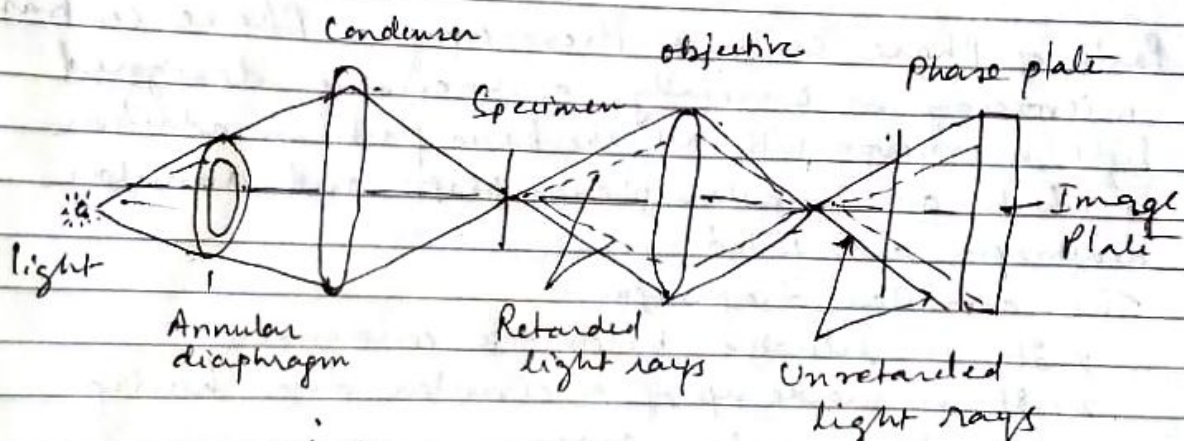 Condenser
objective
Phase plate
Specimen
Image
Plate
light
Annular
diaphragm
Retarded
light rays
Unretarded
light rays